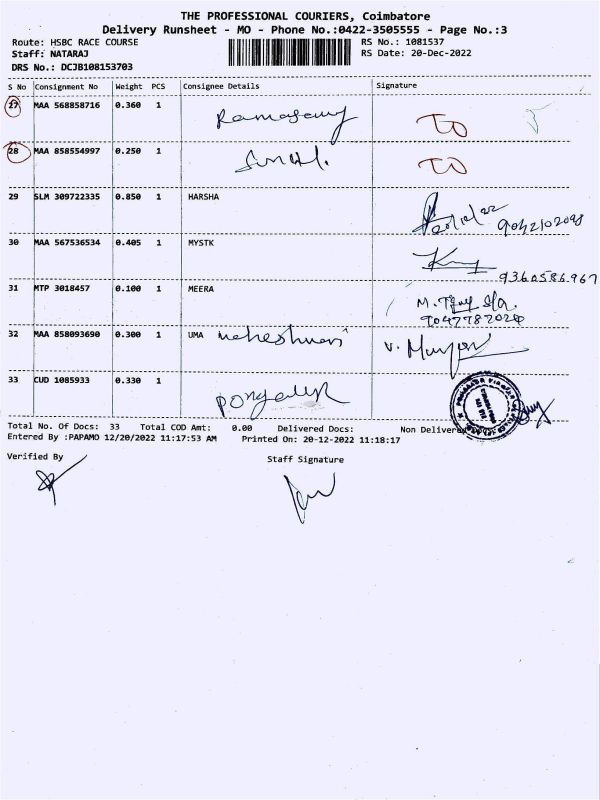 THE PROFESSIONAL COURIERS, Coimbatore
Delivery Runsheet - MO - Phone No.:0422-3505555 - Page No.:3
Route: HSBC RACE COURSE
RS No.: 1081537
Staff: NATARAJ
RS Date: 20-Dec-2022
DRS No.: DCJB108153703
S No Consignment No Weight PCS Consignee Details Signature
27 MAA 568858716 0.360 1 Ramasamy TO
28 MAA 858554997 0.250 1 TO
29 SLM 309722335 0.850 1 HARSHA
9042102098
30 MAA 567536534 0.405 1 MYSTK
9360586967
31 MTP 3018457 0.100 1 MEERA
9047782024
32 MAA 858093690 0.300 1 UMA maheshwari
33 CUD 1085933 0.330 1
Total No. Of Docs: 33 Total COD Amt: 0.00 Delivered Docs: Non Delivered
Entered By :PAPAMO 12/20/2022 11:17:53 AM Printed On: 20-12-2022 11:18:17
Verified By
Staff Signature